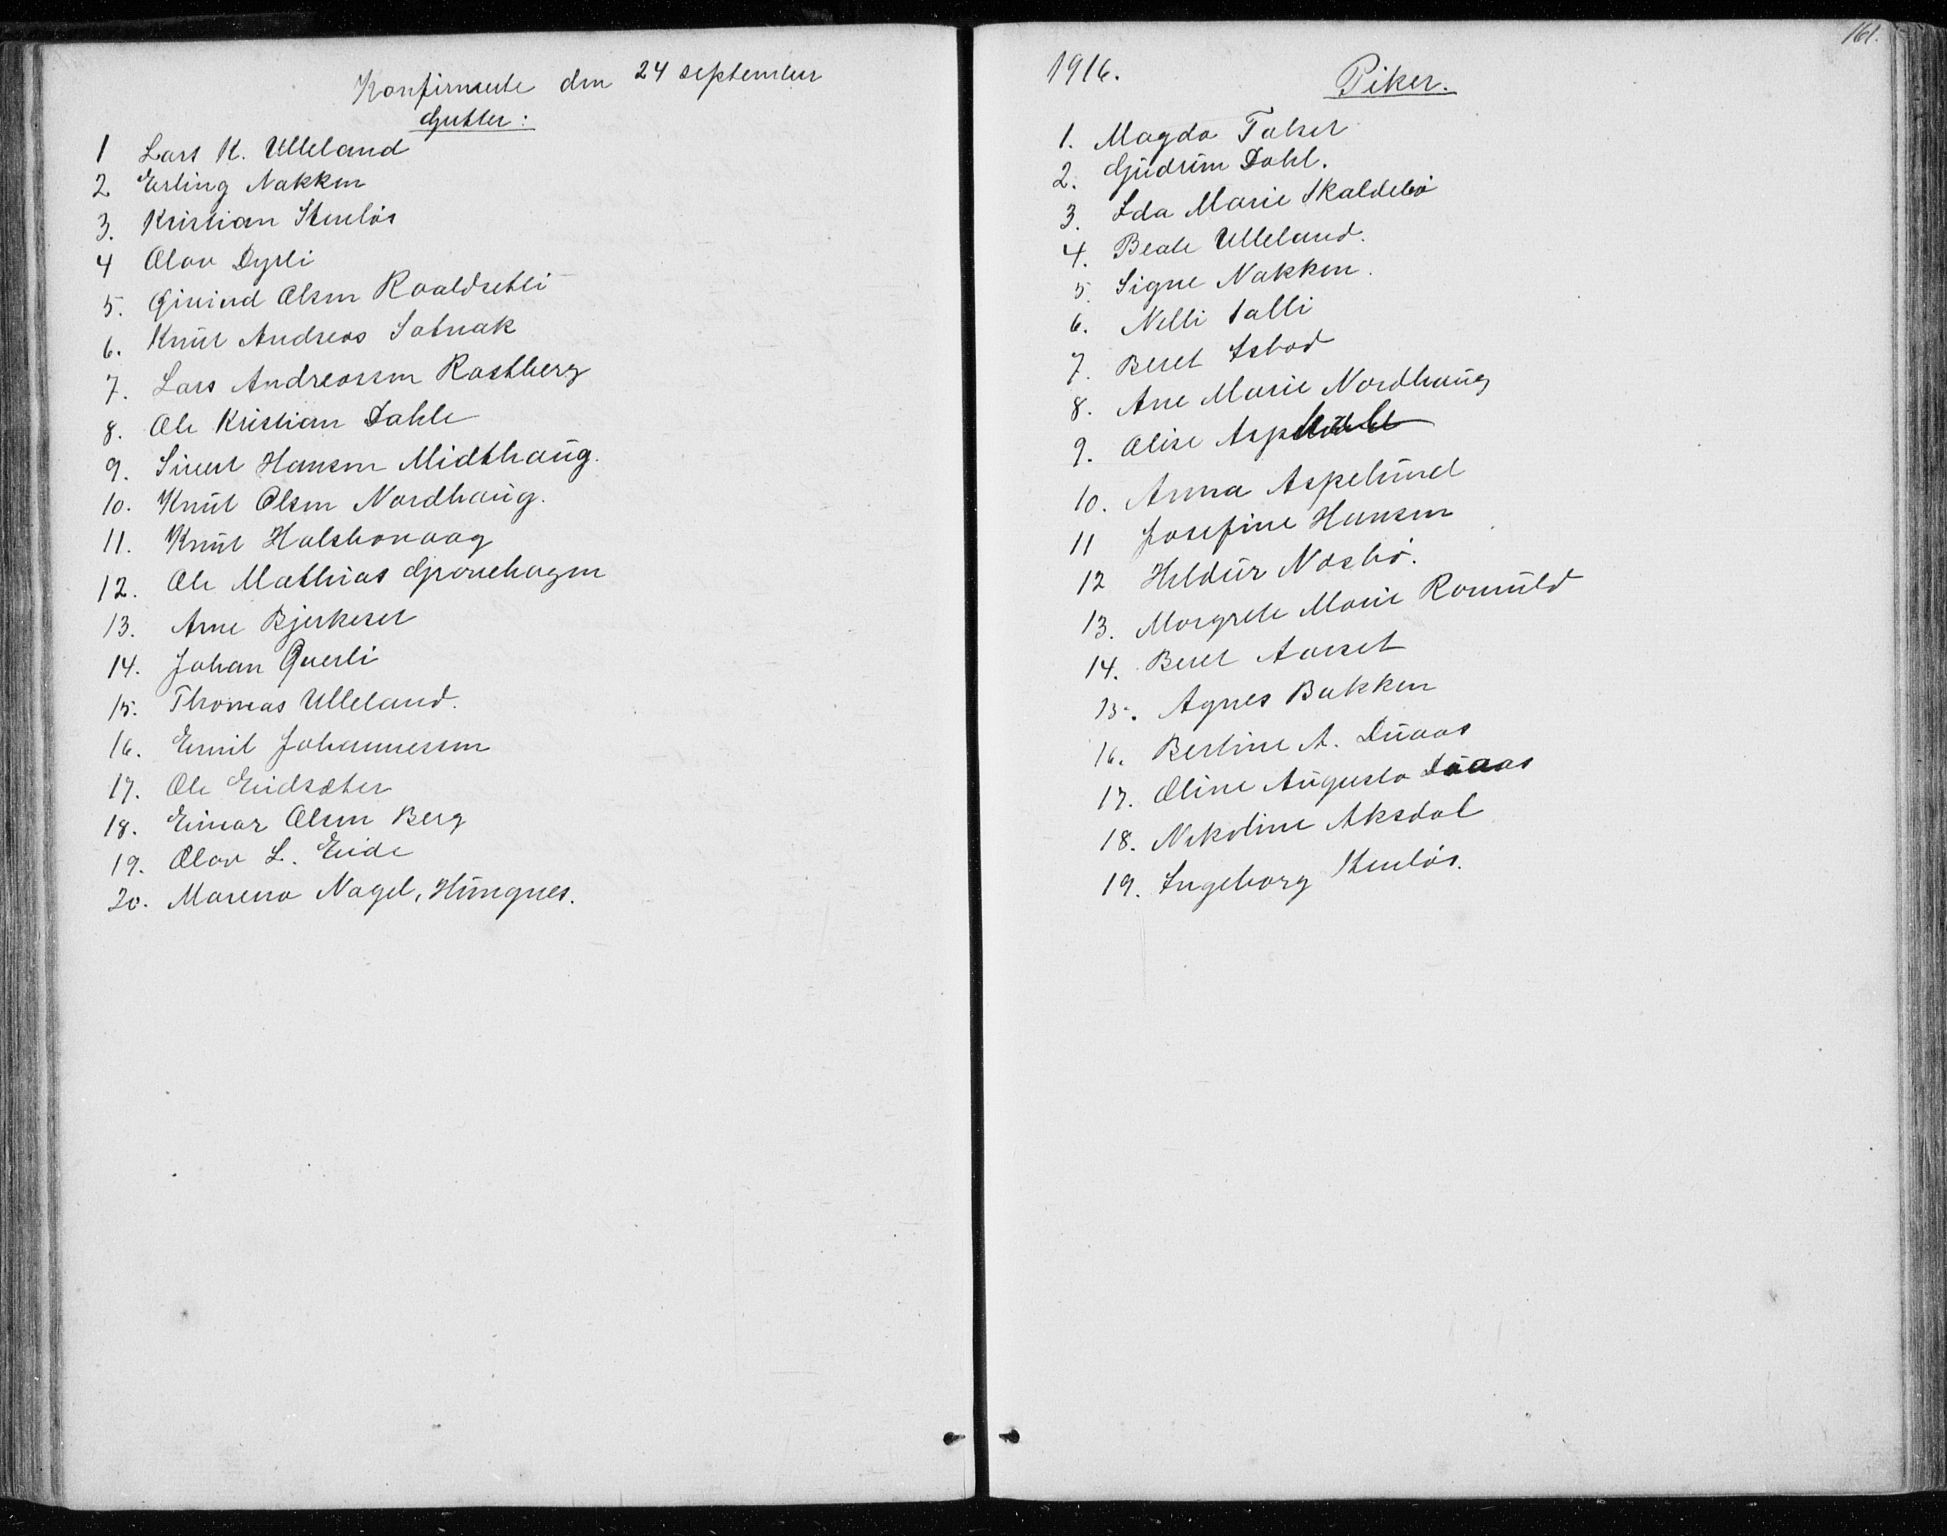 Konfirmerte den 24 september
Gutter:
1 Lars K. Ulleland
2 Erling Nakken
3. Kristian Stenløs
4 Olav Dyrli
5. Eivind Olsen Roaldsetli
6. Knut Andreas Solnak
7. Lars Andreassen Rostberg
8. Ole Kristian Dahle
9. Sivert Hansen Midthaug.
10. Knut Olsen Nordhaug.
11. Knut Halsbovaag
12. Ole Mathias Gronehagen
13. Arne Bjerkeset
14. Johan Qverli
15. Thomas Ulleland.
16. Emil Johannessen
17. Ole Eidsæter
18. Einar Olsen Berg
19. Olav L. Eide
20. Mareno Nagel, Hungnes.
161.
1916.
Piker.
1. Magda Talset
2. Gudrun Dahl.
3. Ida Marie Skaldebø
4. Beate Ulleland.
5. Signe Nakken.
6. Nelli Talli
7. Beret Isbod
8. Ane Marie Nordhaug
9. Olise
10. Anna Aspelund
11 Josefine Hansen
12 Heldur Nosbø.
13. Margrete Marie Romuld
14. Beret Aarset
15. Agnes Bakken
16. Bertine A. Duaas
17. Oline Augusta Duaas
18. Nekoline Aksdal
19. Ingeborg Stenløs.